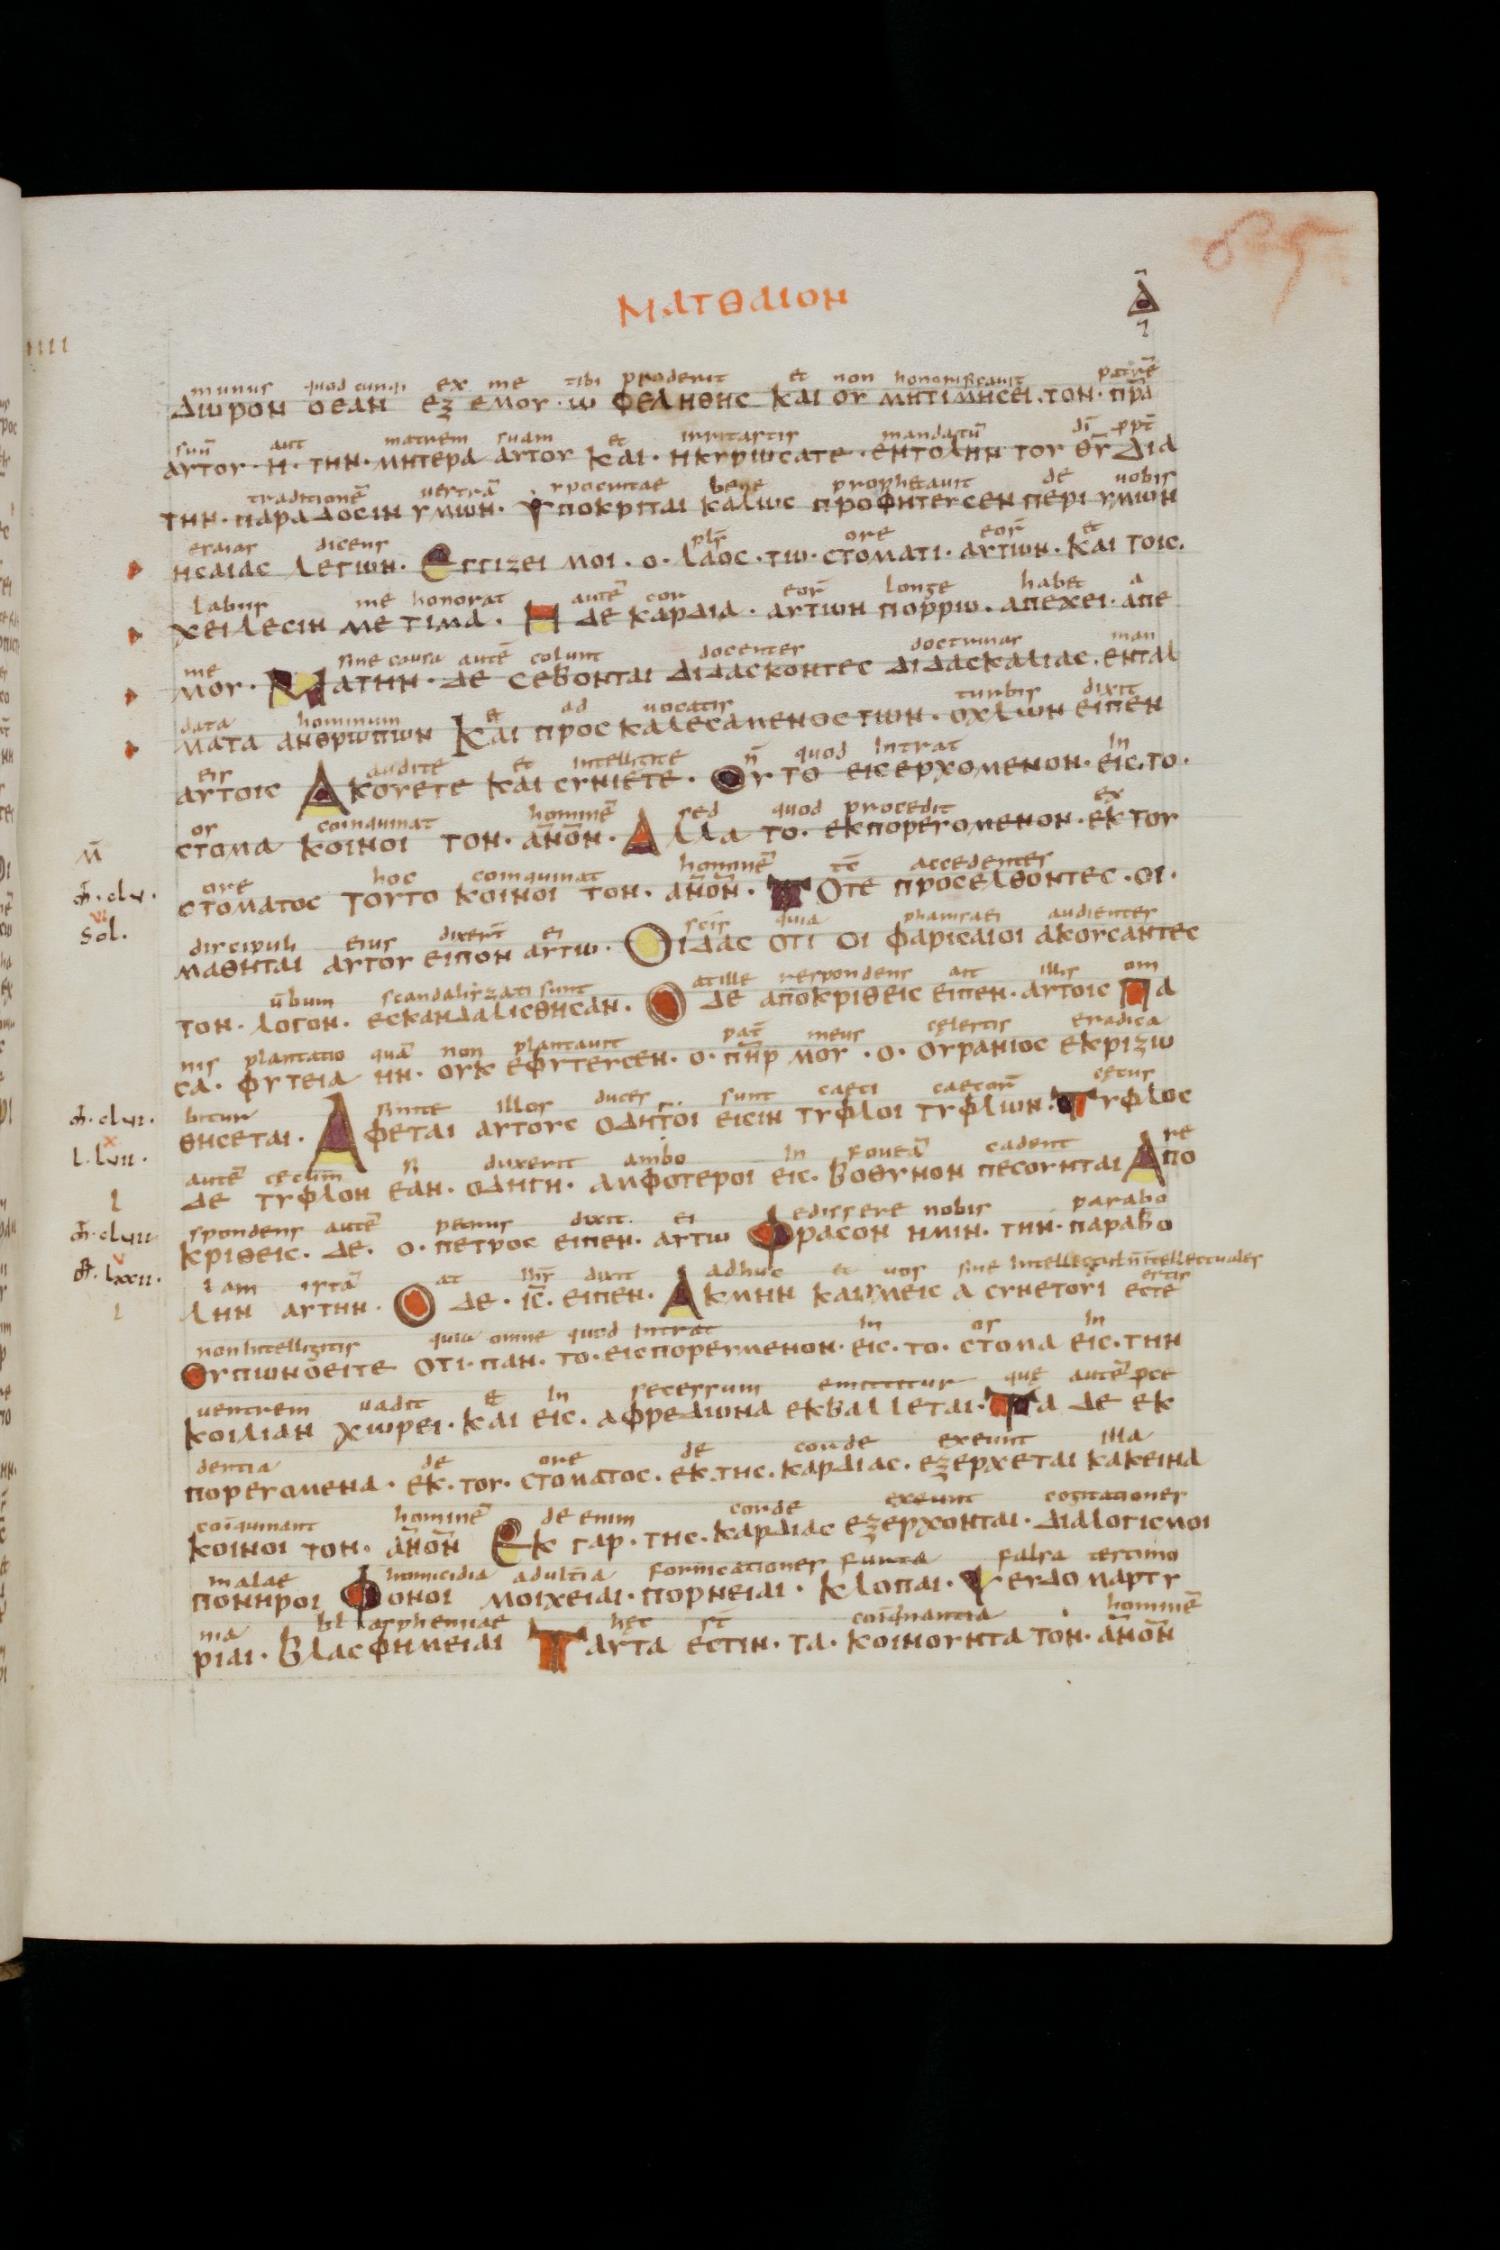 ΜΑΤΘΑΙΟΝ
Δ
munus quod cunqi ex me tibi proderit et non honorificavit patrē
ΔωΡΟΝ ΟΕΑΝ ΕΖ ΕΜΟΥ · ω ΦΕΛΗΘΗC ΚΑΙ ΟΥ ΜΗΤΙΜΗCΕΙ. ΤΟΝ · Π̅Ρ̅Α̅
suū aut matrem suam et irritastis mandatū dī ppt̄
ΑΥΤΟΥ · Η · ΤΗΝ · ΜΗΤΕΡΑ ΑΥΤΟΥ ΚΑΙ · ΗΚΥΡΙωCΑΤΕ · ΕΝΤΟΛΗΝ ΤΟΥ Θ̅Υ̅ ΔΙΑ
traditionē vestrā ypocritae bene prophetavit de vobis
ΤΗΝ · ΠΑΡΑΔΟCΙΝ ΥΜωΝ · ΥΠΟΚΡΙΤΑΙ ΚΑΛωC ΠΡΟΦΗΤΕΥCΕΝ ΠΕΡΙ ΥΜωΝ
esaias dicens pls̄ ore eor̄ et
ΗCΑΙΑC ΛΕΓωΝ · ΕΓΓΙΖΕΙ ΜΟΙ · Ο · ΛΑΟC · Τω · CΤΟΜΑΤΙ · ΑΥΤωΝ · ΚΑΙ ΤΟΙC.
labiis me honorat autē cor eor̄ longe habet a
ΧΕΙΛΕCΙΝ ΜΕ ΤΙΜΑ · Η ΔΕ ΚΑΡΔΙΑ · ΑΥΤωΝ ΠΟΡΡω · ΑΠΕΧΕΙ · ΑΠΕ
me sine causa autē colunt docentes doctrinas man
ΜΟΥ · ΜΑΤΗΝ · ΔΕ CΕΒΟΝΤΑΙ ΔΙΔΑCΚΟΝΤΕC ΔΙΔΑCΚΑΛΙΑC · ΕΝΤΑΛ
data hominum et ad vocatis turbis dixit
ΜΑΤΑ ΑΝΘΡωΠωΝ ΚΑΙ ΠΡΟC ΚΑΛΕCΑΜΕΝΟC ΤωΝ · ΟΧΛωΝ ΕΙΠΕΝ
eis audite et intelligite n̄ quod intrat in
ΑΥΤΟΙC ΑΚΟΥΕΤΕ ΚΑΙ CΥΝΙΕΤΕ · ΟΥ ΤΟ ΕΙCΕΡΧΟΜΕΝΟΝ · ΕΙC · ΤΟ ·
os coinquinat hominē sed quod procedit ex
CΤΟΜΑ ΚΟΙΝΟΙ ΤΟΝ · Α̅Ν̅Ο̅Ν · ΑΛΛΑ ΤΟ · ΕΚΠΟΡΕΥΟΜΕΝΟΝ · ΕΚ ΤΟΥ
ore hoc coinquinat hominē tc̄ accedentes
CΤΟΜΑΤΟC ΤΟΥΤΟ ΚΟΙΝΟΙ ΤΟΝ · Α̅Ν̅Ο̅Ν · ΤΟΤΕ ΠΡΟCΕΛΘΟΝΤΕC · ΟΙ ·
discipuli eius dixert̄ ei scis quia pharisaei audientes
ΜΑΘΗΤΑΙ ΑΥΤΟΥ ΕΙΠΟΝ ΑΥΤω · ΟΙΔΑC ΟΤΙ ΟΙ ΦΑΡΙCΑΙΟΙ ΑΚΟΥCΑΝΤΕC
ūbum scandalizzati sunt at ille respondens ait illis om
ΤΟΝ · ΛΟΓΟΝ · ΕCΚΑΝΔΑΛΙCΘΗCΑΝ · Ο ΔΕ ΑΠΟΚΡΙΘΕΙC ΕΙΠΕΝ · ΑΥΤΟΙC ΠΑ
nis plantatio quā non plantavit pat̄ meus cęlestis eradica
CΑ · ΦΥΤΕΙΑ ΗΝ · ΟΥΚ ΕΦΥΤΕΥCΕΝ · Ο · Π̅Η̅Ρ ΜΟΥ · Ο · ΟΥΡΑΝΙΟC ΕΚΡΙΖω
bitur sinite illos duces sunt caeci caecor̄ cęcus
ΘΗCΕΤΑΙ · ΑΦΕΤΑΙ ΑΥΤΟΥC ΟΔΗΓΟΙ ΕΙCΙΝ ΤΥΦΛΟΙ ΤΥΦΛωΝ · ΤΥΦΛΟC
autē cecum si duxerit ambo in foveā cadent re
ΔΕ ΤΥΦΛΟΝ ΕΑΝ · ΟΔΗΓΗ · ΑΜΦΟΤΕΡΟΙ ΕΙC · ΒΟΘΥΝΟΝ ΠΕCΟΥΝΤΑΙ ΑΠΟ
spondens autē petrus dixit ei edissere nobis parabo
ΚΡΙΘΕΙC · ΔΕ · Ο · ΠΕΤΡΟC ΕΙΠΕΝ · ΑΥΤω ΦΡΑCΟΝ ΗΜΙΝ · ΤΗΝ · ΠΑΡΑΒΟ
lam istā at ihs̄ dixit adhuc et vos sine intellectu
ΛΗΝ ΑΥΤΗΝ · Ο ΔΕ · Ι̅C̅ · ΕΙΠΕΝ · ΑΚΜΗΝ ΚΑΙ ΥΜΕΙC Α CΥΝΕΤΟΙ ΕCΤΕ
non intelligitis quia omne quod intrat in os in
ΟΥΠωΝΟΕΙΤΕ ΟΤΙ · ΠΑΝ · ΤΟ · ΕΙCΠΟΡΕΥΜΕΝΟΝ · ΕΙC · ΤΟ · CΤΟΜΑ ΕΙC · ΤΗΝ
ventrem vadit et in secessum emittitur quę autē pce
ΚΟΙΛΙΑΝ ΧωΡΕΙ · ΚΑΙ ΕΙC · ΑΦΡΕΔωΝΑ ΕΚΒΑΛΛΕΤΑΙ · ΤΑ ΔΕ ΕΚ
dentia de ore de corde exeunt illa
ΠΟΡΕΥΟΜΕΝΑ · ΕΚ · ΤΟΥ · CΤΟΜΑΤΟC · ΕΚ · ΤΗC · ΚΑΡΔΙΑC · ΕΖΕΡΧΕΤΑΙ ΚΑΚΕΙΝΑ
coīquinant hominē de enim corde exeunt cogitationes
ΚΟΙΝΟΙ ΤΟΝ · Α̅Ν̅Ο̅Ν ΕΚ ΓΑΡ · ΤΗC · ΚΑΡΔΙΑC ΕΖΕΡΧΟΝΤΑΙ · ΔΙΑΛΟΓΙCΜΟΙ
malae homicidia adultia fornicationes furta falsa testimo
ΠΟΝΗΡΟΙ ΦΟΝΟΙ ΜΟΙΧΕΙΑΙ · ΠΟΡΝΕΙΑΙ · ΚΛΟΠΑΙ · ΨΕΥΔΟΜΑΡΤΥ
nia blasphemiae hęc st̄ coīqnantia hominē
ΡΙΑΙ · ΒΛΑCΦΗΜΕΙΑΙ ΤΑΥΤΑ ΕCΤΙΝ · ΤΑ · ΚΟΙΝΟΥΝΤΑ ΤΟΝ · Α̅Ν̅Ο̅Ν